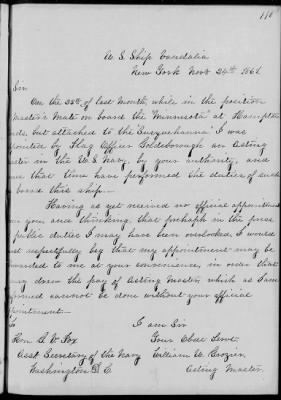 110
U. S. Ship Vandalia
New York Nov 24th 1861
Sir
On the 28th of last Month, while in the position
Master's Mate on board the "Minnesota" at Hampton
ds. but attached to the "Susquehanna" I was
pointed by Flag Officer Goldsborough an Acting
ster in the U.S. Navy, by your authority, and
ce that time have performed the duties of such
board this ship.—
Having as yet received no official appointment
om you and thinking, that perhaps in the press
public duties I may have been overlooked, I would
ost respectfully beg that my appointment may be
warded to me at your convenience, in order that
may draw the pay of Acting Master, which as I am
formed cannot be done without your official
pointment.—
I am Sir
Hon. G. V. Fox Your Obdt Servt
Asst. Secretary of the Navy William W. Crozier
Washington D. C. Acting Master.